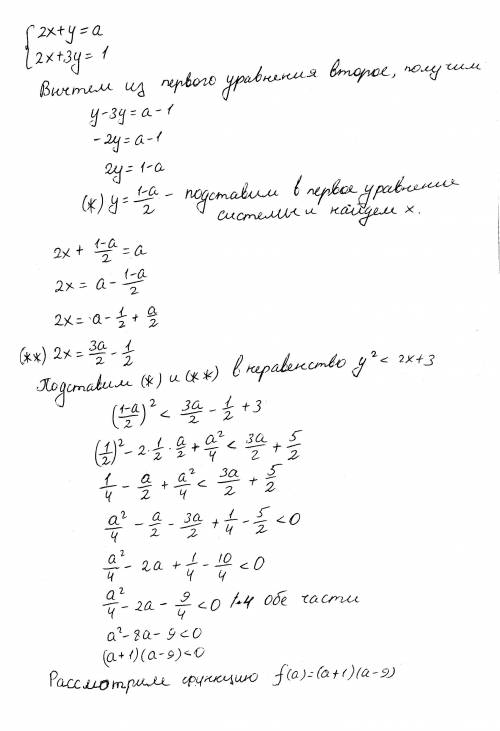 {2x+y=a
2x+3y=1
Вычтем из первого уравнения второе, получим
y-3y=a-1
-2y=a-1
2y=1-a
(*) y=\frac{1-a}{2} - подставим в первое уравнение
системы и найдем x.
2x+\frac{1-a}{2}=a
2x=a-\frac{1-a}{2}
2x=a-\frac{1}{2}+\frac{a}{2}
(**) 2x=\frac{3a}{2}-\frac{1}{2}
Подставим (*) и (**) в неравенство y²<2x+3
(\frac{1-a}{2})²<\frac{3a}{2}-\frac{1}{2}+3
(\frac{1}{2})²-2·\frac{1}{2}·\frac{a}{2}+\frac{a²}{4}<\frac{3a}{2}+\frac{5}{2}
\frac{1}{4}-\frac{a}{2}+\frac{a²}{4}<\frac{3a}{2}+\frac{5}{2}
\frac{a²}{4}-\frac{a}{2}-\frac{3a}{2}+\frac{1}{4}-\frac{5}{2}<0
\frac{a²}{4}-2a+\frac{1}{4}-\frac{10}{4}<0
\frac{a²}{4}-2a-\frac{9}{4}<0 |·4 обе части
a²-8a-9<0
(a+1)(a-9)<0
Рассмотрим функцию f(a)=(a+1)(a-9)